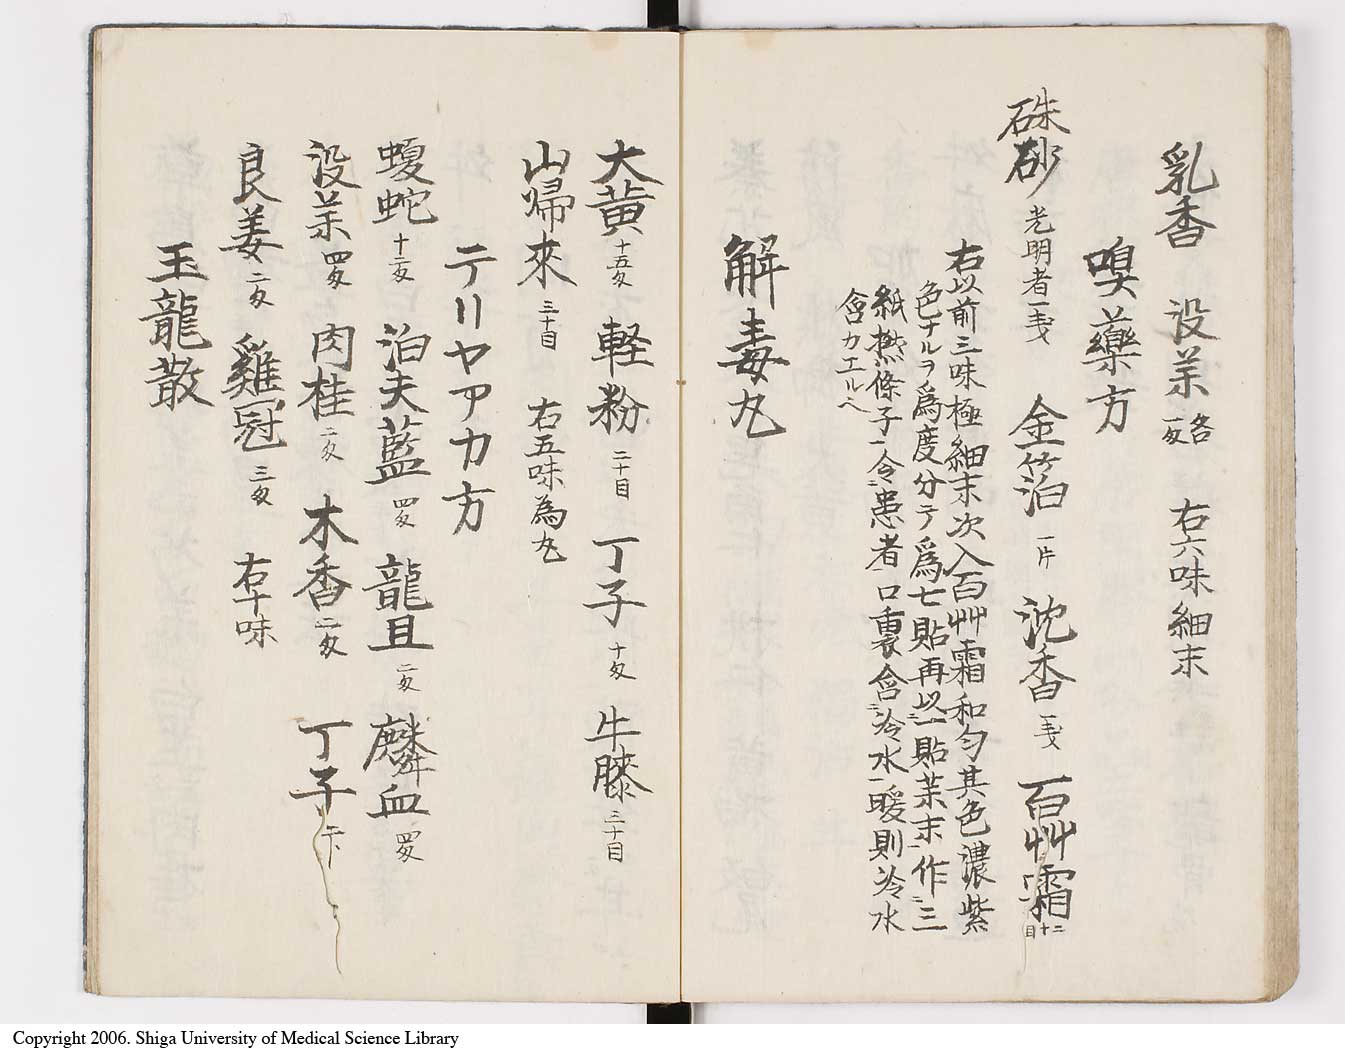 乳香 没薬 各二匁 右六味細末
嗅藥方
硃砂 光明者一戔 金箔 一片 沈香 五戔 百艸霜 二十目
右以前三味極細末次入百艸霜和匀其色濃紫
色ナルヲ爲度分テ爲七貼再以一貼薬末作三
紙撚條子令患者口裏含冷水暖則冷水
含カエルヘ
解毒丸
大黄 十五匁 軽粉 二十目 丁子 十匁 牛膝 三十目
山帰來 三十目 右五味為丸
テリヤアカ方
蝮蛇 十二匁 泊夫藍 四匁 龍且 二匁 麟血 四匁
没薬 四匁 肉桂 二匁 木香 二匁 丁子
良姜 二匁 雞冠 三匁 右十味
玉龍散
Copyright 2006. Shiga University of Medical Science Library